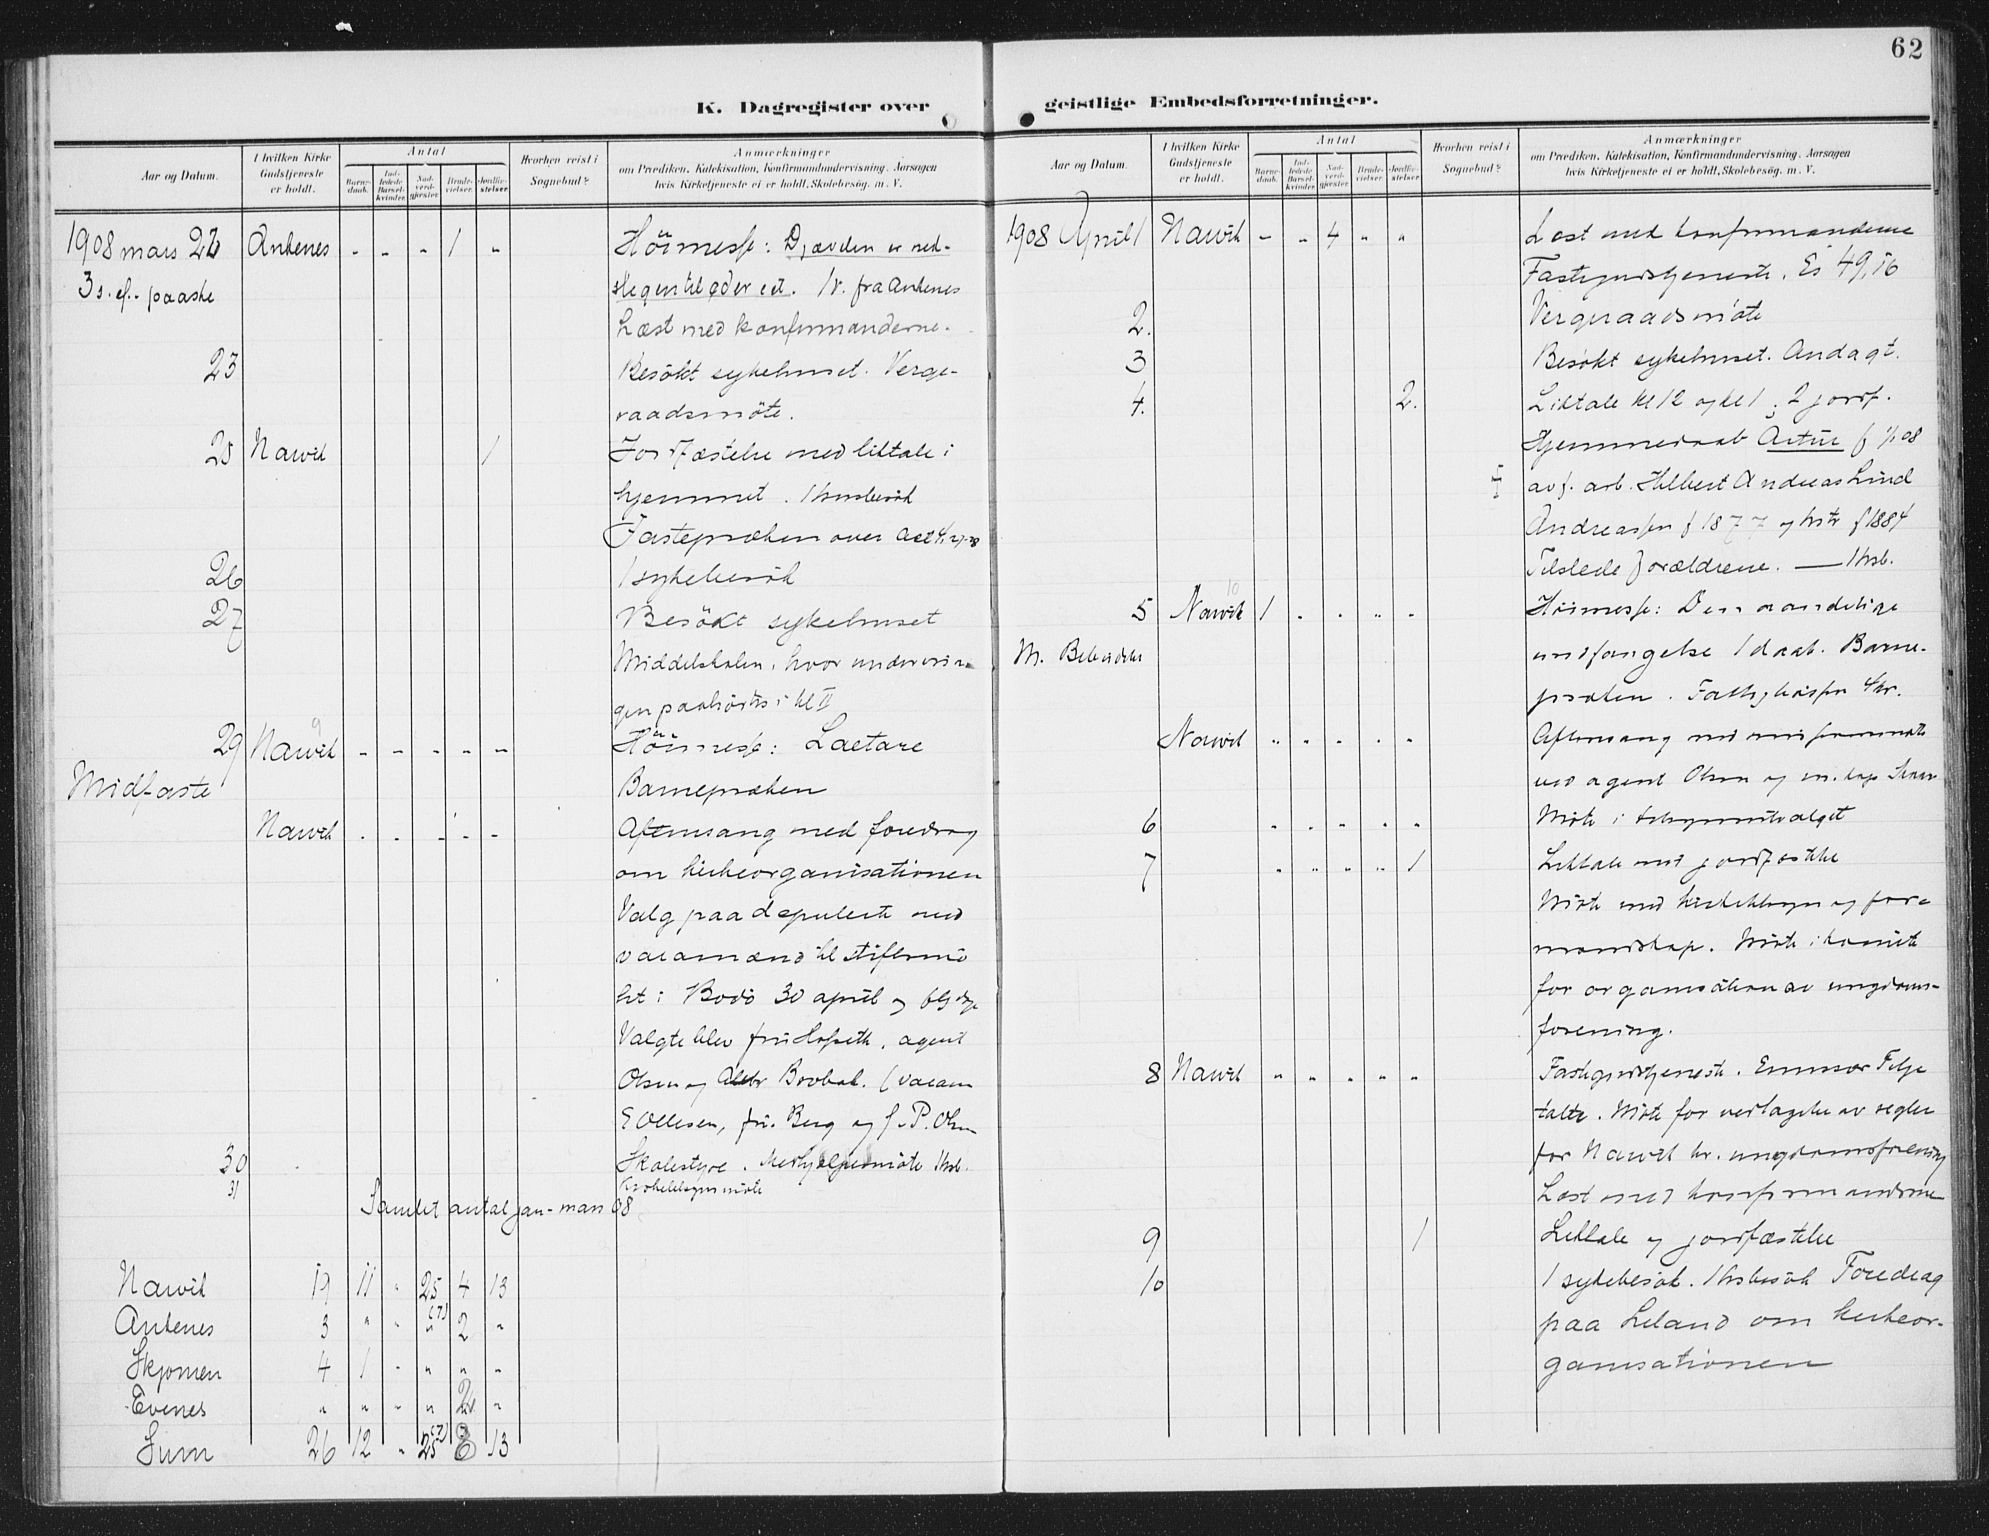 62
K. Dagregister over geistlige Embedsforretninger.
Aar og Datum.
I hvilken Kirke Gudstjeneste er holdt.
Antal
Barnedaab.
Indledede Barselkvinder.
Nadverdgjæster.
Brudevielser.
Jordfæstelser.
Hvorhen reist i Sognebud?
Anmærkninger
om Prædiken, Katekisation, Konfirmandundervisning. Aarsagen
hvis Kirketjeneste ei er holdt, Skolebesøg. m. V.
1908 mars 22 Ankenes - - - 1 - Höimesse: Djævelen er ned-
3 s. ef. paaske
1 v. fra Ankenes
Læst med konfirmanderne.
23 Besökt sykehuset. Verge-
raadsmöte.
25 Narvik 1 Jordfæstelse med liktale i
hjemmet. 1 husbesök
Fastepræken over
26 1 sykebesök
27 Besökt sykehuset
Middelskolen, hvor undervisnin-
gen paahörtes i kl II
29 Narvik - - - - - Höimesse: Laetare
Midfaste Barnepræken
Narvik - - - - - Aftensang med foredrag
om kirkeorganisationen
Valg paa deputerte med
varamænd til stiftsmö
tet i Bodö 30 april og
Valgte blev fru Hofseth, agent
Olsen og
E Ellesen, fru Berg og J. P. Olsen
30 Skolestyre. Medhjælpermöte 1 husb.
31
Samlet antal jan-mars 08
Narvik 19 11 - 25 4 13
Ankenes 3 - - (7) - 2 -
Skjomen 4 1 - - - -
Evenes - - - - 2 -
Sum 26 12 - 25 (7) 8 13
Aar og Datum.
I hvilken Kirke Gudstjeneste er holdt.
Antal
Barnedaab.
Indledede Barselkvinder.
Nadverdgjæster.
Brudevielser.
Jordfæstelser.
Hvorhen reist i Sognebud?
Anmærkninger
om Prædiken, Katekisation, Konfirmandundervisning. Aarsagen
hvis Kirketjeneste ei er holdt, Skolebesøg. m. V.
1908 April 1 Narvik - - 4 - - Læst med konfirmanderne
Fastegudstjeneste. Es 49,16
2. Vergeraadsmöte
3 Besökt sykehuset. Andagt.
4. 2. Liktale kl 12 og kl 1, 2 jordf.
Hjemmedaab Artur f
av f. arb. Hilbert Andreas Lind
Andreassen f 1877 og hstr f 1884
Tilstede forældrene. — 1 husb.
5 Narvik 1 - - - - Höimesse: Den aandelige
M. Bebudelse undfangelse 1 daab. Barne-
præken.
Narvik - - - - - Aftensang med
ved agent Olsen og
6 - - - - - Möte i
7 - - - - 1 Liktale med jordfæstelse
Möte med kirketilsyn og for-
mandskap. Möte i komite
for organisation av ungdoms-
forening.
8 Narvik - - - - - Fastegudstjeneste.
talte. Möte for vedtagelse av regler
for Narvik kr. ungdomsforening
Læst med konfirmanderne
9 1 Liktale og jordfæstelse
10 1 sykebesök. 1 husbesök Foredrag
paa Leland om kirkeor-
ganisationen